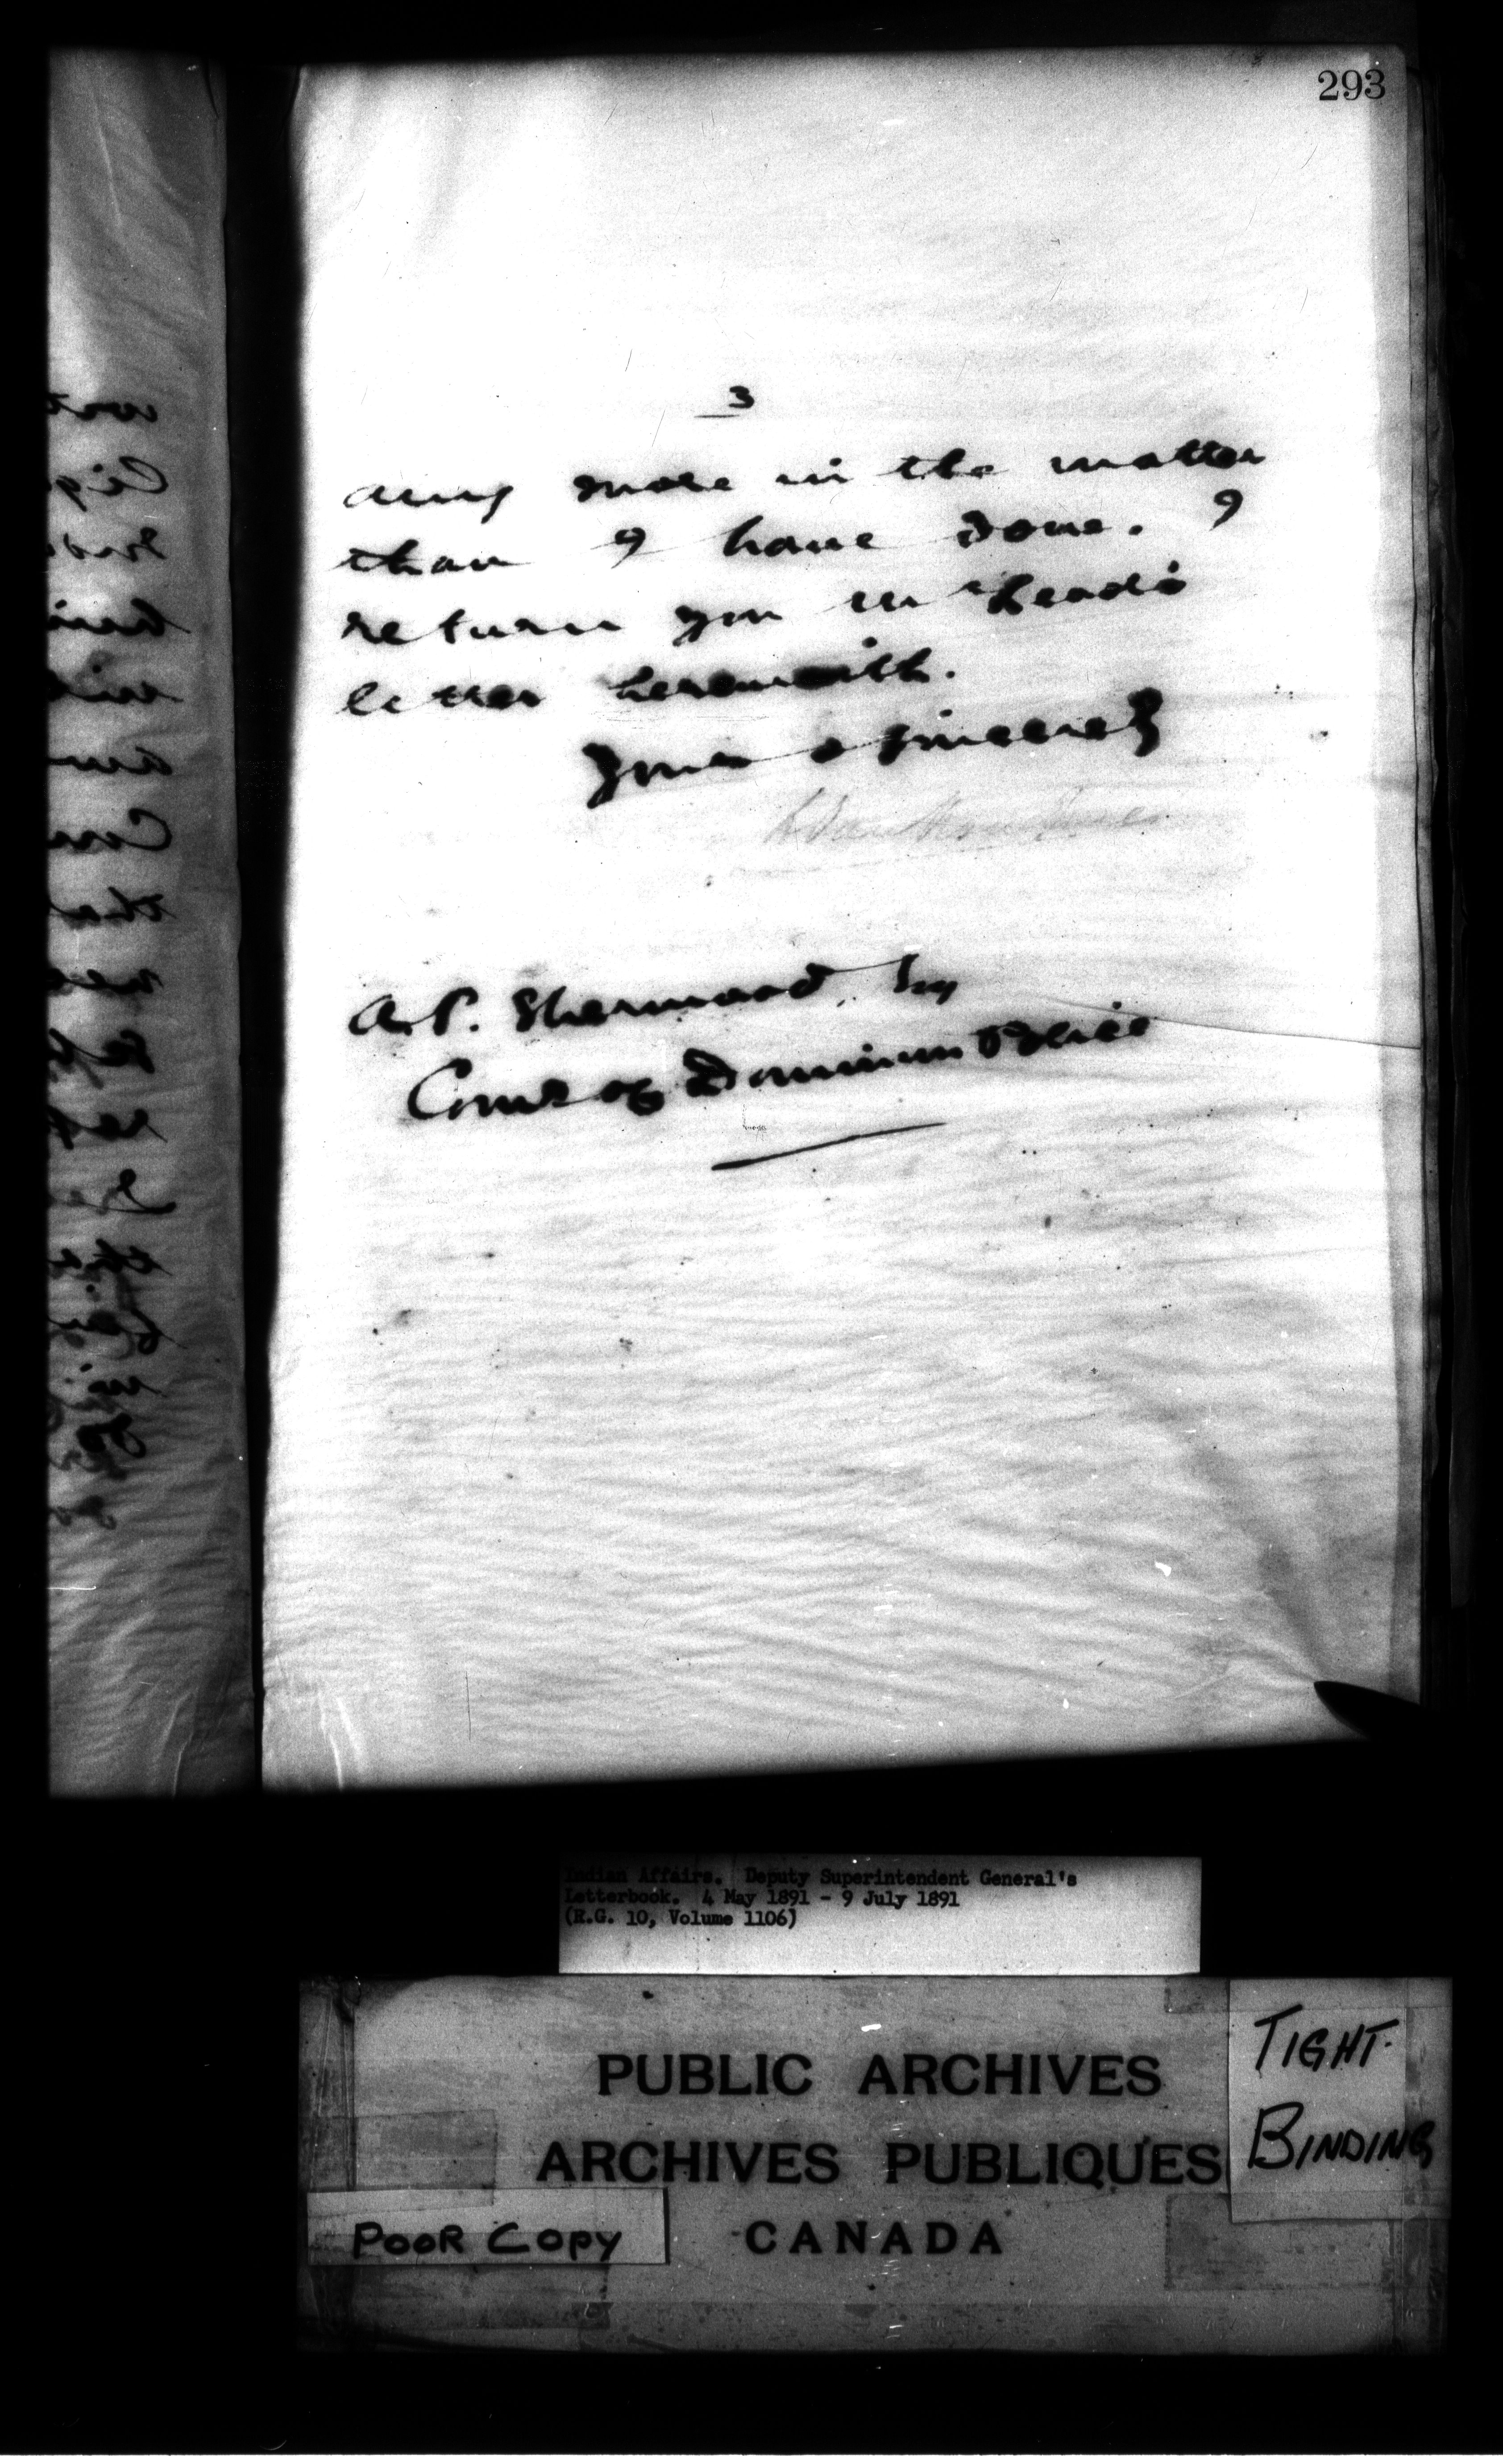 293
3
any more in the matter
than I have done. I
return you Mr Reade's
letter herewith.
Yours sincerely
A.P. Sherwood, Esq
Comr of Dominion Police
Indian Affairs. Deputy Superintendent General's
Letterbook. 4 May 1891 - 9 July 1891
(R.G. 10, Volume 1106)
PUBLIC ARCHIVES
ARCHIVES PUBLIQUES
CANADA
TIGHT
BINDING
POOR COPY